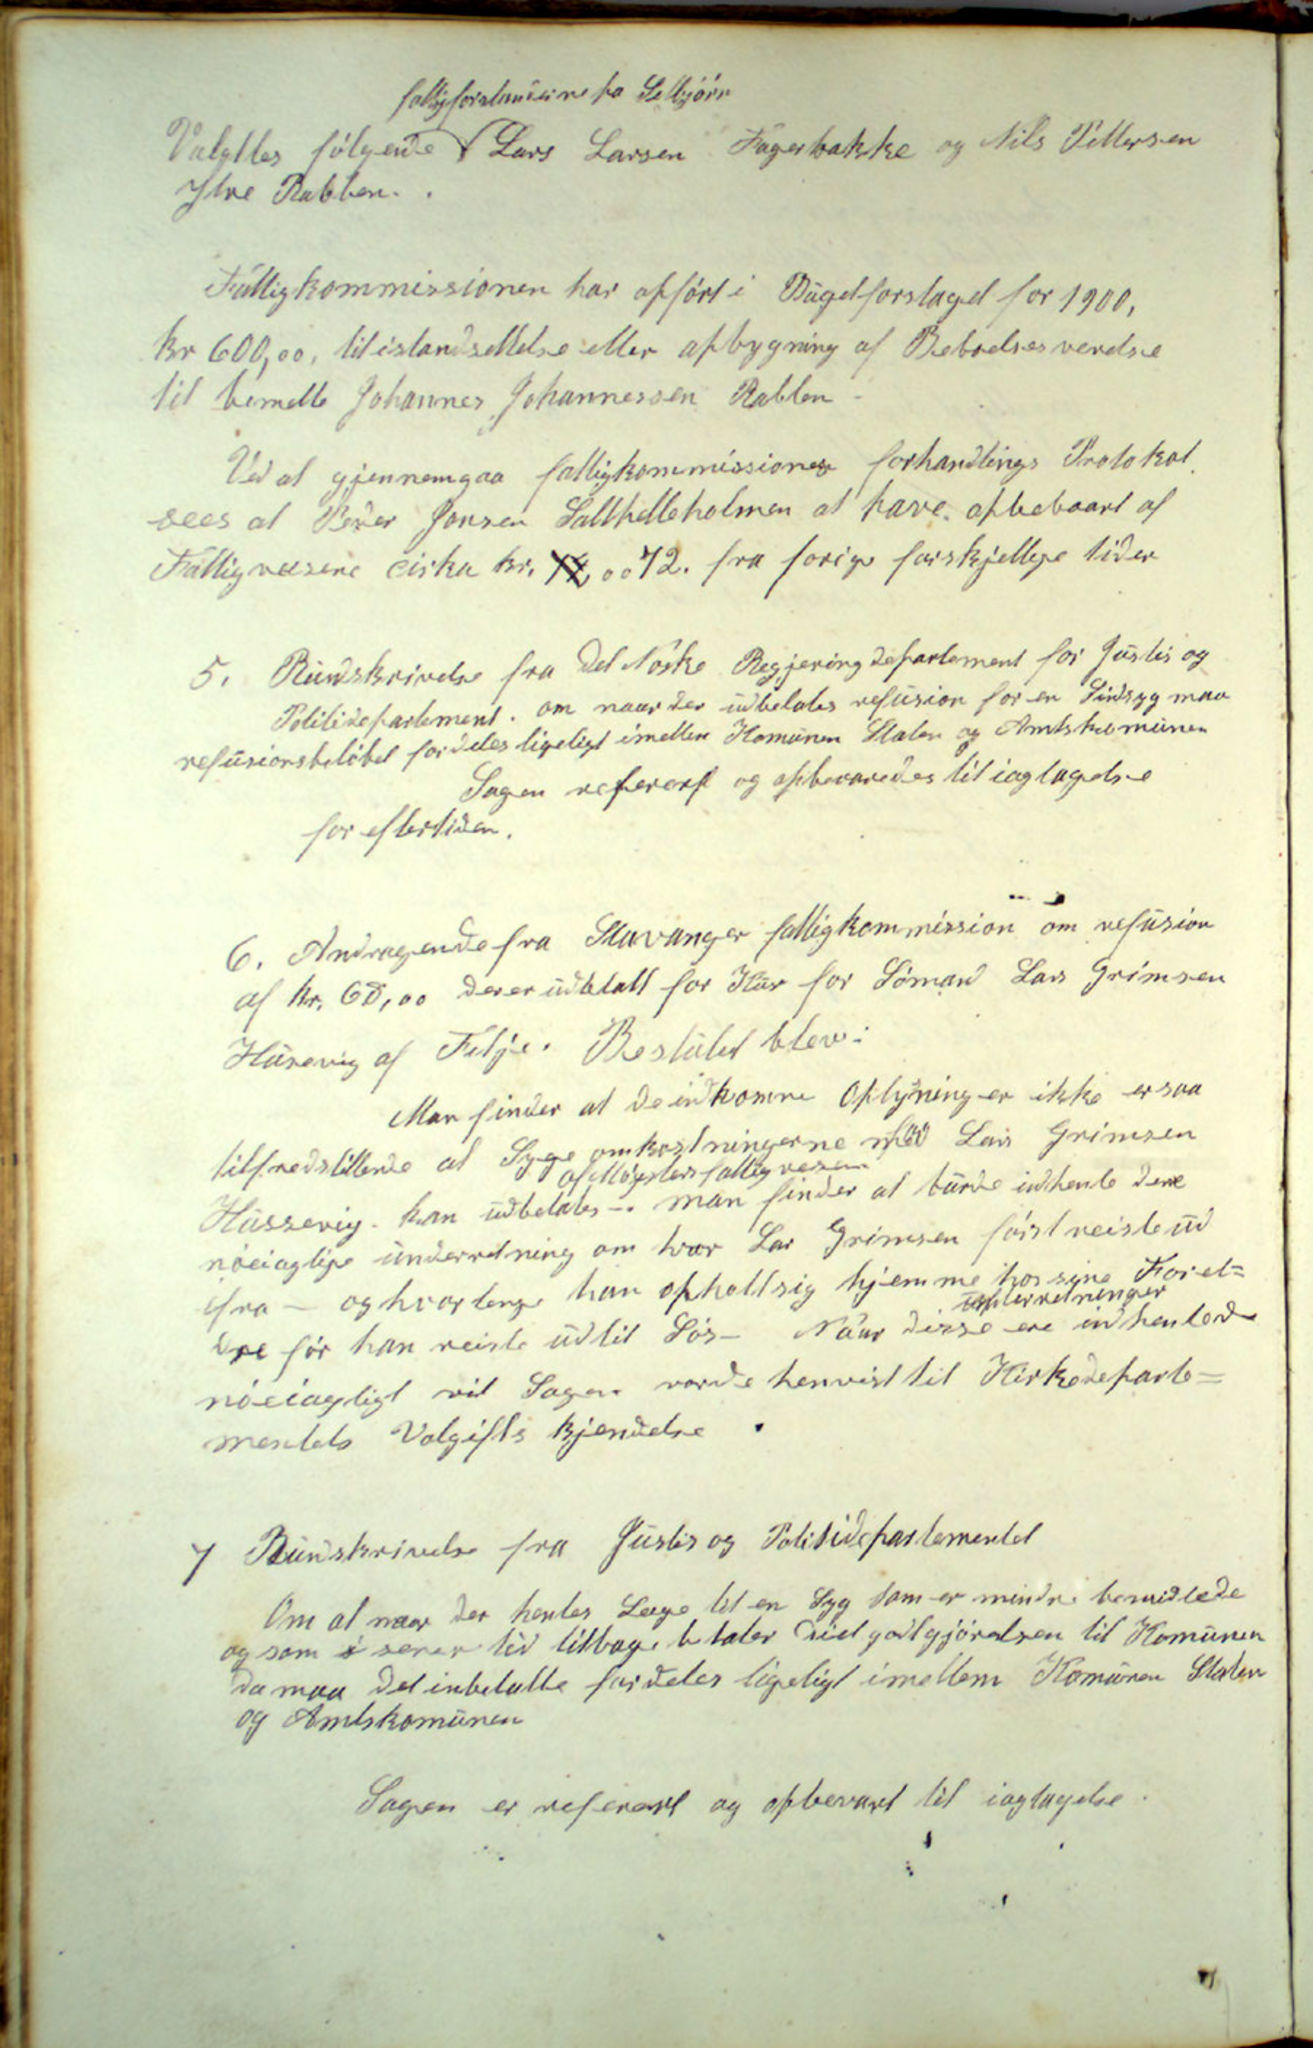 fattigforstanderne paa Selbjörn
Valgttes fölgende Lars Larsen Fagerbakke og Nils Pettersen
Ytre Rabben.
Fattigkommissionen har opfört i Bügetforslaget for 1900,
kr 600,00, til istandsettelse eller opbygning af Beboelses verelse
til bemelte Johannes Johannessen Rabben -
Ved at gjennemgaa fattigkommissiones forhandlings Protokol
sees at Peder Jonsen Salthelleholmen at have opbebaart af
Fattigvesene cirka kr. 72. fra forige forskjellige tider
5. Rundskrivelse fra Det Noske Regjering departement for Justis og
Politidepartement. om naar der udbetales refusion for en Sindsyg maa
refusionsbelöbet fordeles ligeligt imellem Komunen Staten og Amtskomunen
Sagen referert og opbevaredes til iagtagelse
for eftertiden.
6. Andragende fra Stavanger fattigkommission om refusion
af kr. 68,00 der er udbetalt for Kur for Sömand Lars Grimsen
Husevig af Fitje. Beslutet blev:
Man finder at de indkomne Oplysninger ikke er saa
tilfredstillende at Syge omkostningerne Lars Grimsen
af Mögsters fattigvesen
Hussevig. kan udbetales -. man finder at burde indhente dene
nöeiaglige underretning om hvor Lar Grimsen först reiste ud
ifra - og hvorlenge han opholt sig hjemme hos sine Forel=
underretninger
dre för han reiste ud til Söis - Naar disse ere indhentede
nöeiagligt vil Sagen vorde henvist til Kirkedeparte=
mentets Volgifts kjendelse .
7 Rundskrivelse fra Justis og Politidepartementet
Om at naar der hentes Læge til en Syg som er mindre bemidlede
og som i sener tid tilbage betaler godtgjörelsen til Komunen
da maa det inbetalte fordeles ligeligt imellem Komunen Staten
og Amtskomunen
Sagen er referert og opbevart til iagtagelse.